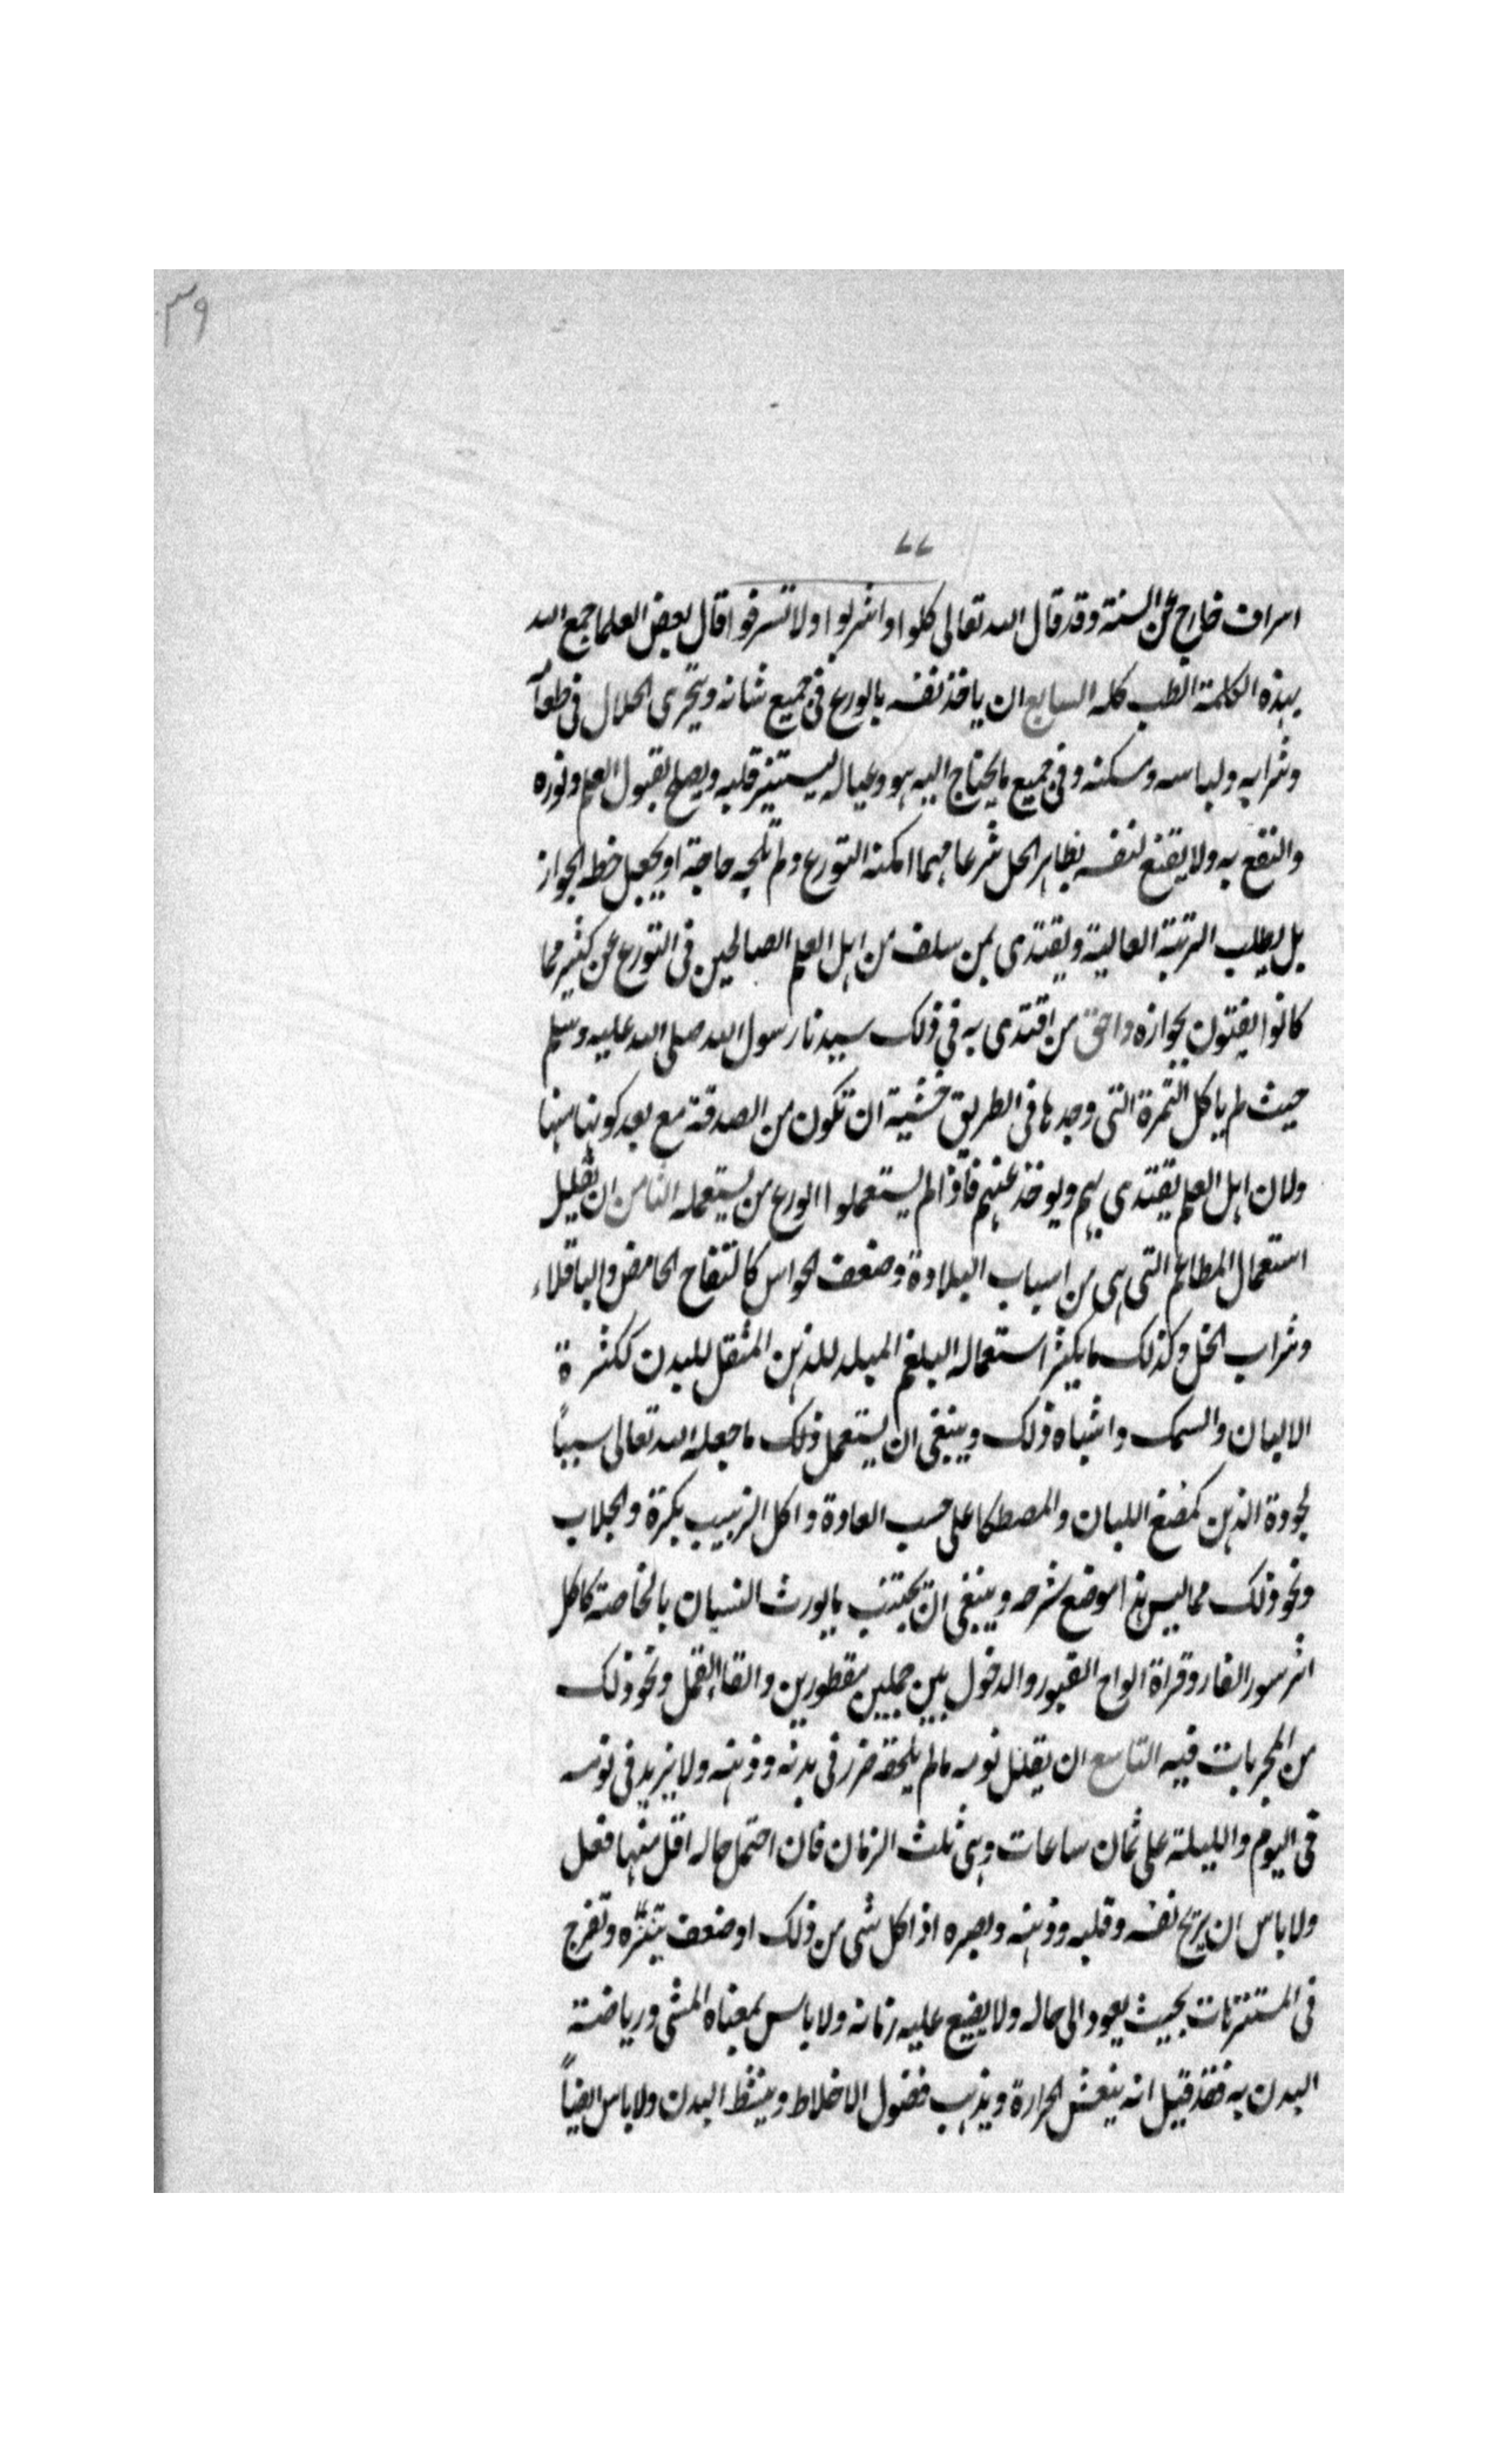 ٣٩
٧٧
اسراف خارج عن السنة وقد قال الله تعالى كلوا واشربوا ولا تسرفوا قال بعض العلما جمع الله
بهذه الكلمة الطب كله السابع ان ياخذ نفسه بالورع فى جميع شانه ويتحرى الحلال فى طعامه
وشرابه ولباسه ومسكنه وفى جميع ما يحتاج اليه هو وعياله ليستنير قلبه ويصلح لقبول العلم ونوره
والنفع به ولا يقنع لنفسه بظاهر الحل شرعا مهما امكنه التورع ولم تلجه حاجة او يجعل حظه الجواز
بل يطلب الرتبة العالية ويقتدى بمن سلف من اهل العلم الصالحين فى التورع عن كثير مما
كانوا يفتون بجوازه واحق من اقتدى به فى ذلك سيدنا رسول الله صلى الله عليه وسلم
حيث لم ياكل التمرة التى وجدها فى الطريق خشية ان تكون من الصدقة مع بعد كونها منها
ولان اهل العلم يقتدى بهم ويوخذ عنهم فاذا لم يستعملوا الورع من يستعمله الثامن ان تقليل
استعمال المطاعم التى هى من اسباب البلادة وضعف الحواس كالتفاح الحامض والباقلاء
وشراب الخل وكذلك ما يكثر استعماله البلغم المبلد للذهن المثقل للبدن ككثرة
الالبان والسمك واشباه ذلك وينبغى ان يستعمل ذلك ما جعله الله تعالى سبباً
لجودة الذهن كمضغ اللبان والمصطكا على حسب العادة واكل الزبيب بكرة والجلاب
ونحو ذلك مما ليس هذا موضع شرحه وينبغى ان يجتنب ما يورث النسيان بالخاصة كاكل
اثر سور الفار وقراة الواح القبور والدخول بين جملين مقطورين والقاء القمل ونحو ذلك
من المجربات فيه التاسع ان يقلل نومه ما لم يلحقه ضرر فى بدنه وذهنه ولا يزيد فى نومه
فى اليوم والليلة على ثمان ساعات وهى ثلث الزمان فان احتمل حاله اقل منها فعل
ولا باس ان يريح نفسه وقلبه وذهنه وبصره اذا كل شى من ذلك او ضعف بتنزّه وتفرج
فى المستنزهات بحيث يعود الى حاله ولا يضيع عليه زمانه ولا باس بمعناه المشى ورياضة
البدن به فقد قيل انه ينعش الحرارة ويذهب فضول الاخلاط وينشط البدن ولا باس ايضاً